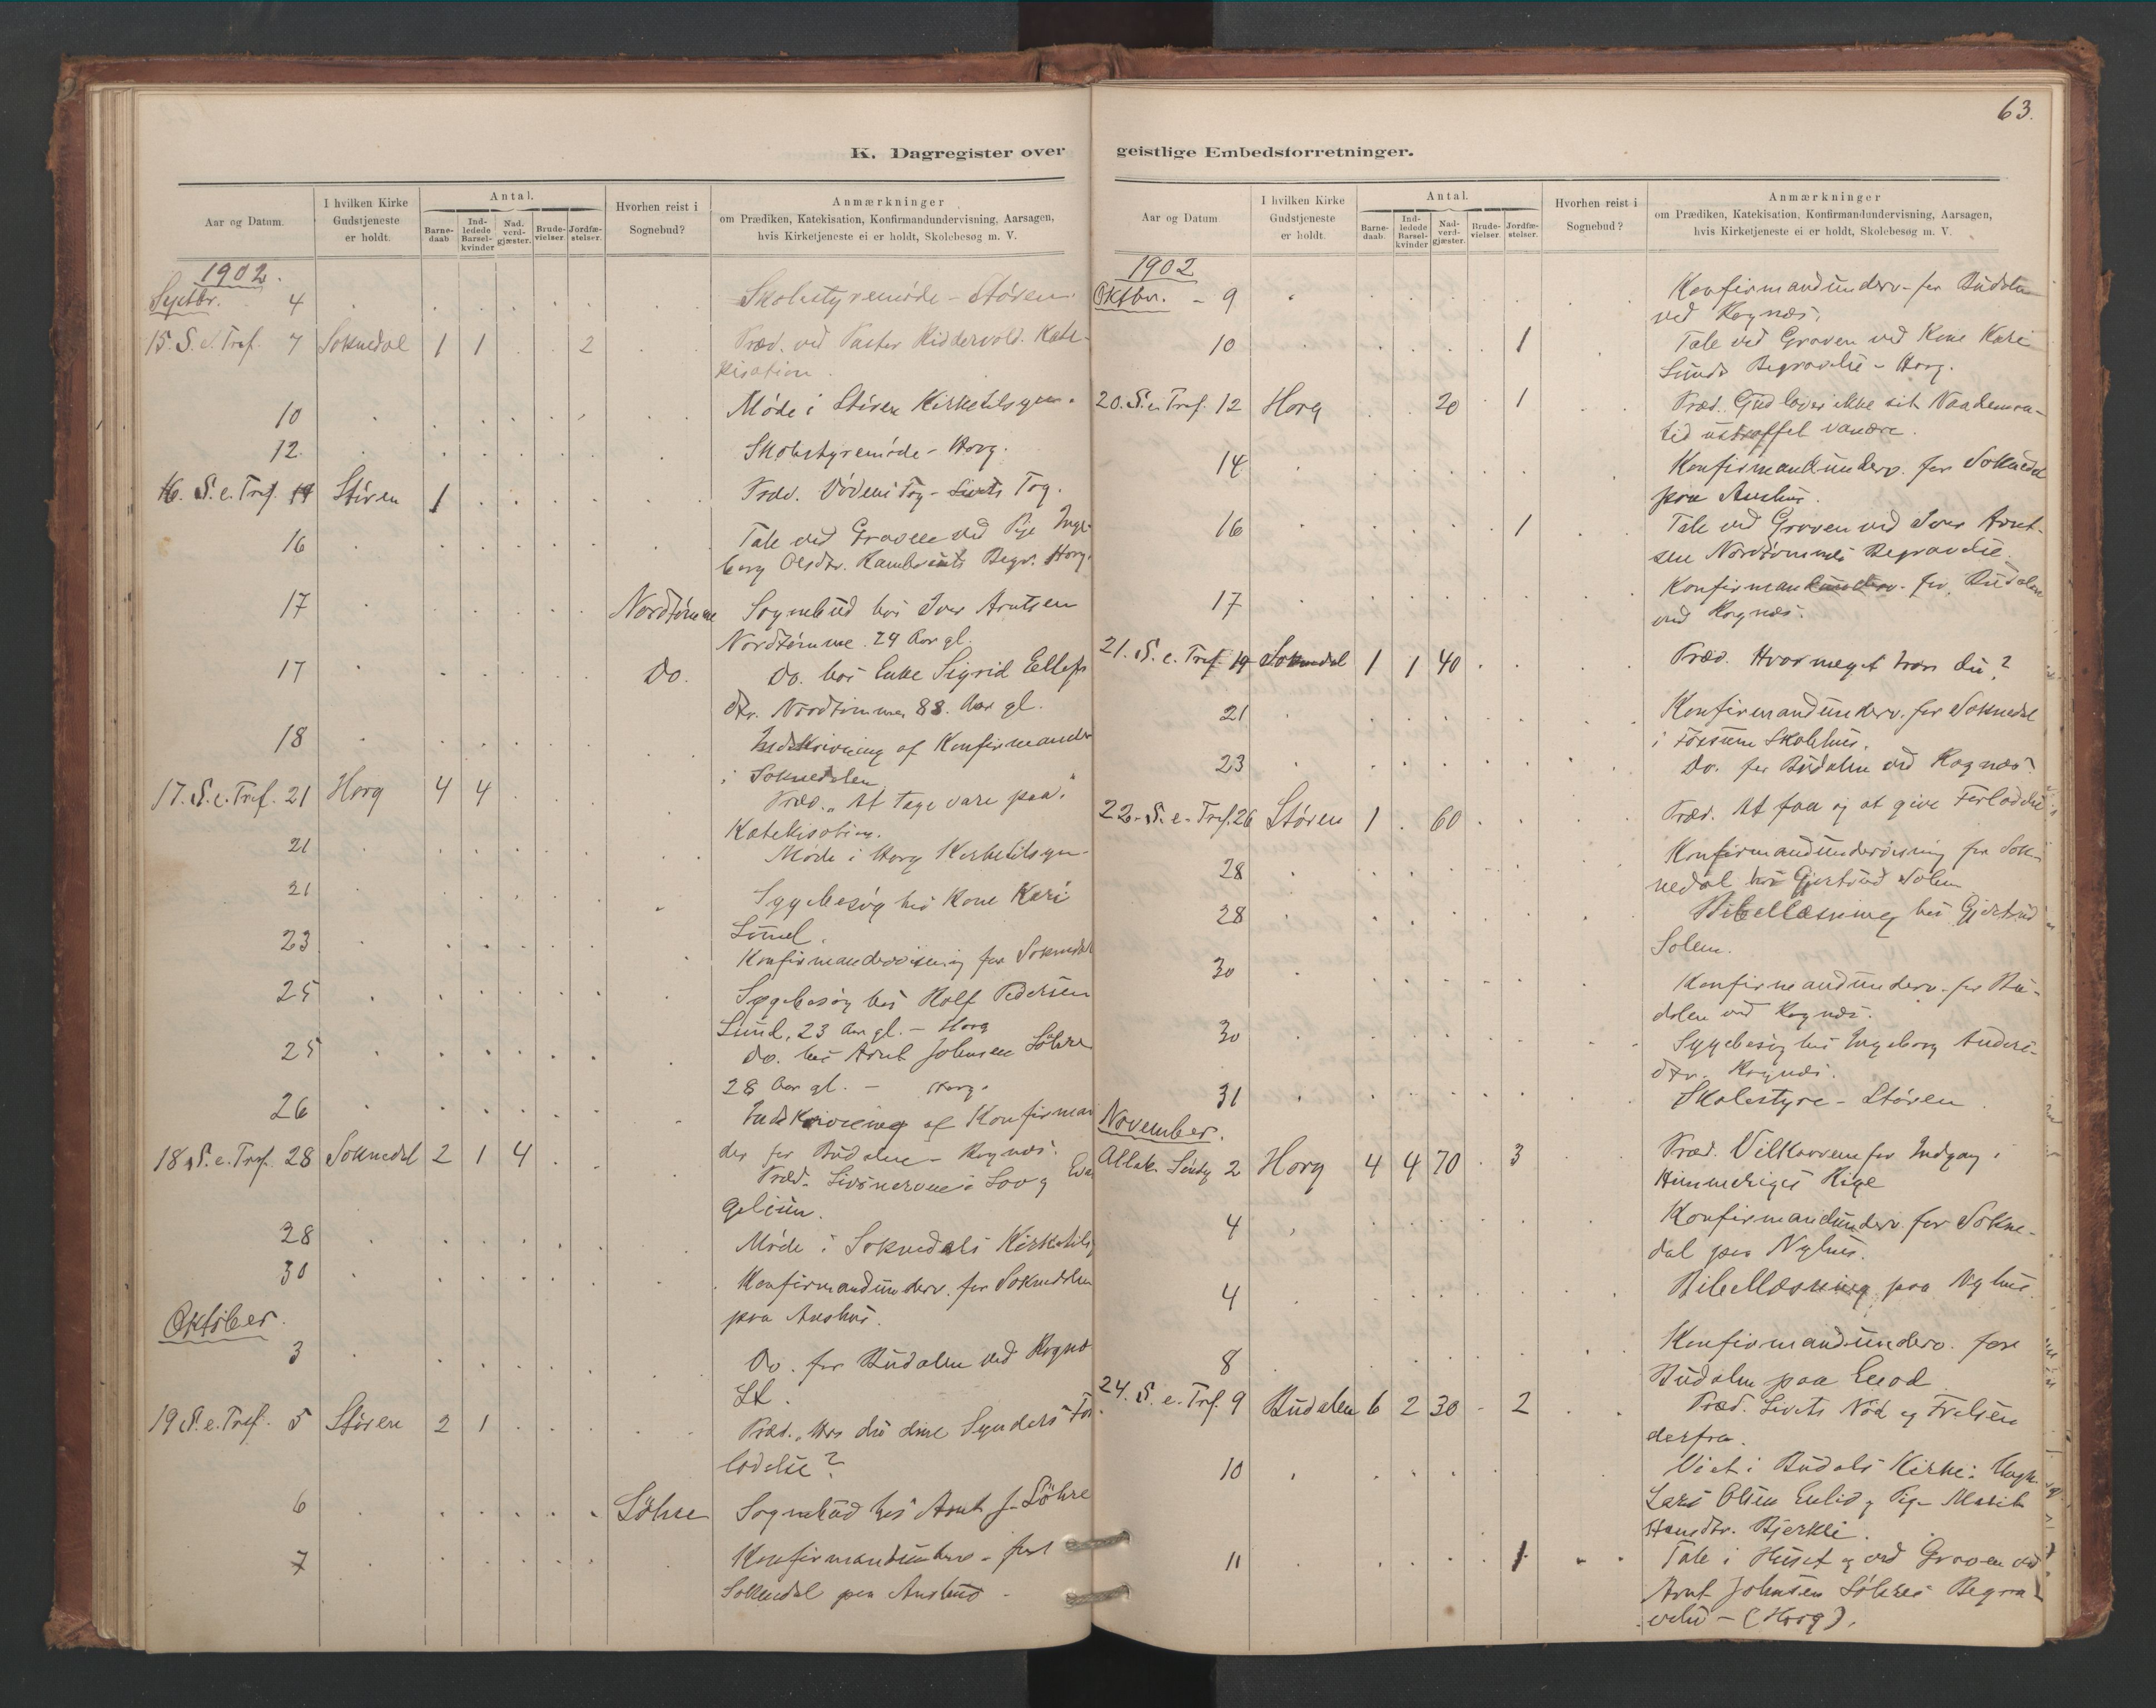 63.
K. Dagregister over
Aar og Datum.
I hvilken Kirke Gudstjeneste er holdt.
Antal.
Barne-daab
Ind-ledede Barsel-kvinder
Nad-verd-gjæster.
Brude-vielser.
Jordfæ-stelser.
Hvorhen reist i Sognebud?
Anmærkninger
om Prædiken, Katekisation, Konfirmandundervisning, Aarsagen,
hvis Kirketjeneste ei er holdt, Skolebesøg m. V.
1902.
Septbr. 4 Skolestyremøde - Støren.
15. S. e. Tref. 7 Soknedal 1 1 2 Præd. ved Pastor Riddervold. Kate-
kisation.
10 Møde i Støren Kirketilsyn.
12 Skolestyremøde - Horg.
16. S. e. Tref. 14 Støren 1 Præd. Dødens Tog - Livets Tog.
16 Tale ved Graven ved Pige Inge-
borg Olsdtr. Begr. Horg.
17 Nordtømme Sognebud hos Iver Arntsen
Nordtømme 29 Aar gl.
17 Do. Do. hos Enke Sigrid Ellefs
dtr. Nordtømme 88 Aar gl.
18 Indskrivning af Konfirmander
i Soknedalen
17. S. e. Tref. 21 Horg 4 4 Præd. "At tage vare paa"
Katekisation.
21 Møde i Horg Kirketilsyn.
21 Sygebesøg hos Kone Kari
Lund.
23 Konfirmandervisning for Soknedal
25 Sygebesøg hos Rolf Pedersen
Lund, 23 Aar gl. - Horg
25 Do. hos Arnt Johnsen Løhre
28 Aar gl. - Horg.
26 Indskrivning af Konfirman
der for Budalen - Rognes.
18. S. e. Tref. 28 Soknedal 2 1 4 Præd. i Lov og Evan
gelium.
28 Møde i Soknedals Kirketils
30 Konfirmandunderv. for Soknedalen
paa Aushus.
Oktober.
3 Do. for Budalen ved Rognes
St.
19 S. e. Tref. 5 Støren 2 1 Præd. "Har du dine Synders For
ladelse?
6 Løhre Sognebud hos Arnt J. Løhre
7 Konfirmandunderv. for
Soknedal paa Aushus -
geistlige Embedsforretninger.
Aar og Datum
I hvilken Kirke Gudstjeneste er holdt.
Antal.
Barne-daab.
Ind-ledede Barsel-kvinder
Nad-verd-gjæster.
Brude-vielser.
Jordfæ-stelser.
Hvorhen reist i Sognebud?
Anmærkninger
om Prædiken, Katekisation, Konfirmandundervisning, Aarsagen,
hvis Kirketjeneste ei er holdt, Skolebesøg m. V.
1902
Oktbr. - 9 Konfirmandunderv. for Budalen
ved Rognes.
10 1 Tale ved Graven ved Kone Kari
Lunds Begravelse - Horg.
20. S. e. Tref. 12 Horg 20 1 Præd. Gud lover ikke sit Naadens
tid ustraffet vanære.
14 Konfirmandunderv. for Soknedal
paa Aushus.
16 1 Tale ved Graven ved Iver Arnt-
sen Nordtømmes Begravelse.
17 Konfirmandunderv. for Budalen
ved Rognes.
21. S. e. Tref. 19 Soknedal 1 1 40 Præd. Hvor meget tror du?
21 Konfirmandunderv. for Soknedal
i Fossum Skolehus.
23 Do. for Budalen ved Rognes
22. S. e. Tref. 26 Støren 1 60 Præd. At faa og at give Forladelse
28 Konfirmandundervisning for Sok-
nedal hos Gjertrud Solem
28 Bibellæsning hos Gjertrud
Solem.
30 Konfirmandunderv. for Bu-
dalen ved Rognes.
30 Sygebesøg hos Ingeborg Anders-
dtr. Rognes.
31 Skolestyre - Støren
November.
Alleh. Søndg 2 Horg 4 4 70 3 Præd. Vilkaarene for Indgang i
Himmeriges Rige
4 Konfirmandunderv. for Sokne-
dal paa Nyhus.
4 Bibellæsning paa Nyhus.
8 Konfirmandunderv. for
Budalen paa Enod
24. S. e. Tref. 9 Budalen 6 2 30 2 Præd. Livets Nød og Frelsen
derfra.
10 Viet i Budals Kirke: Ungk.
Lars Olsen Enlid og Pige Marit
Hansdtr. Bjerkli.
11 1 Tale i Huset og ved Graven ved
Arnt Johnsen Løhres Begra
velse - (Horg).